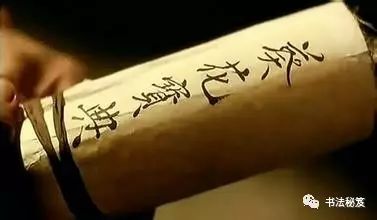 葵花寶典
书法秘笈